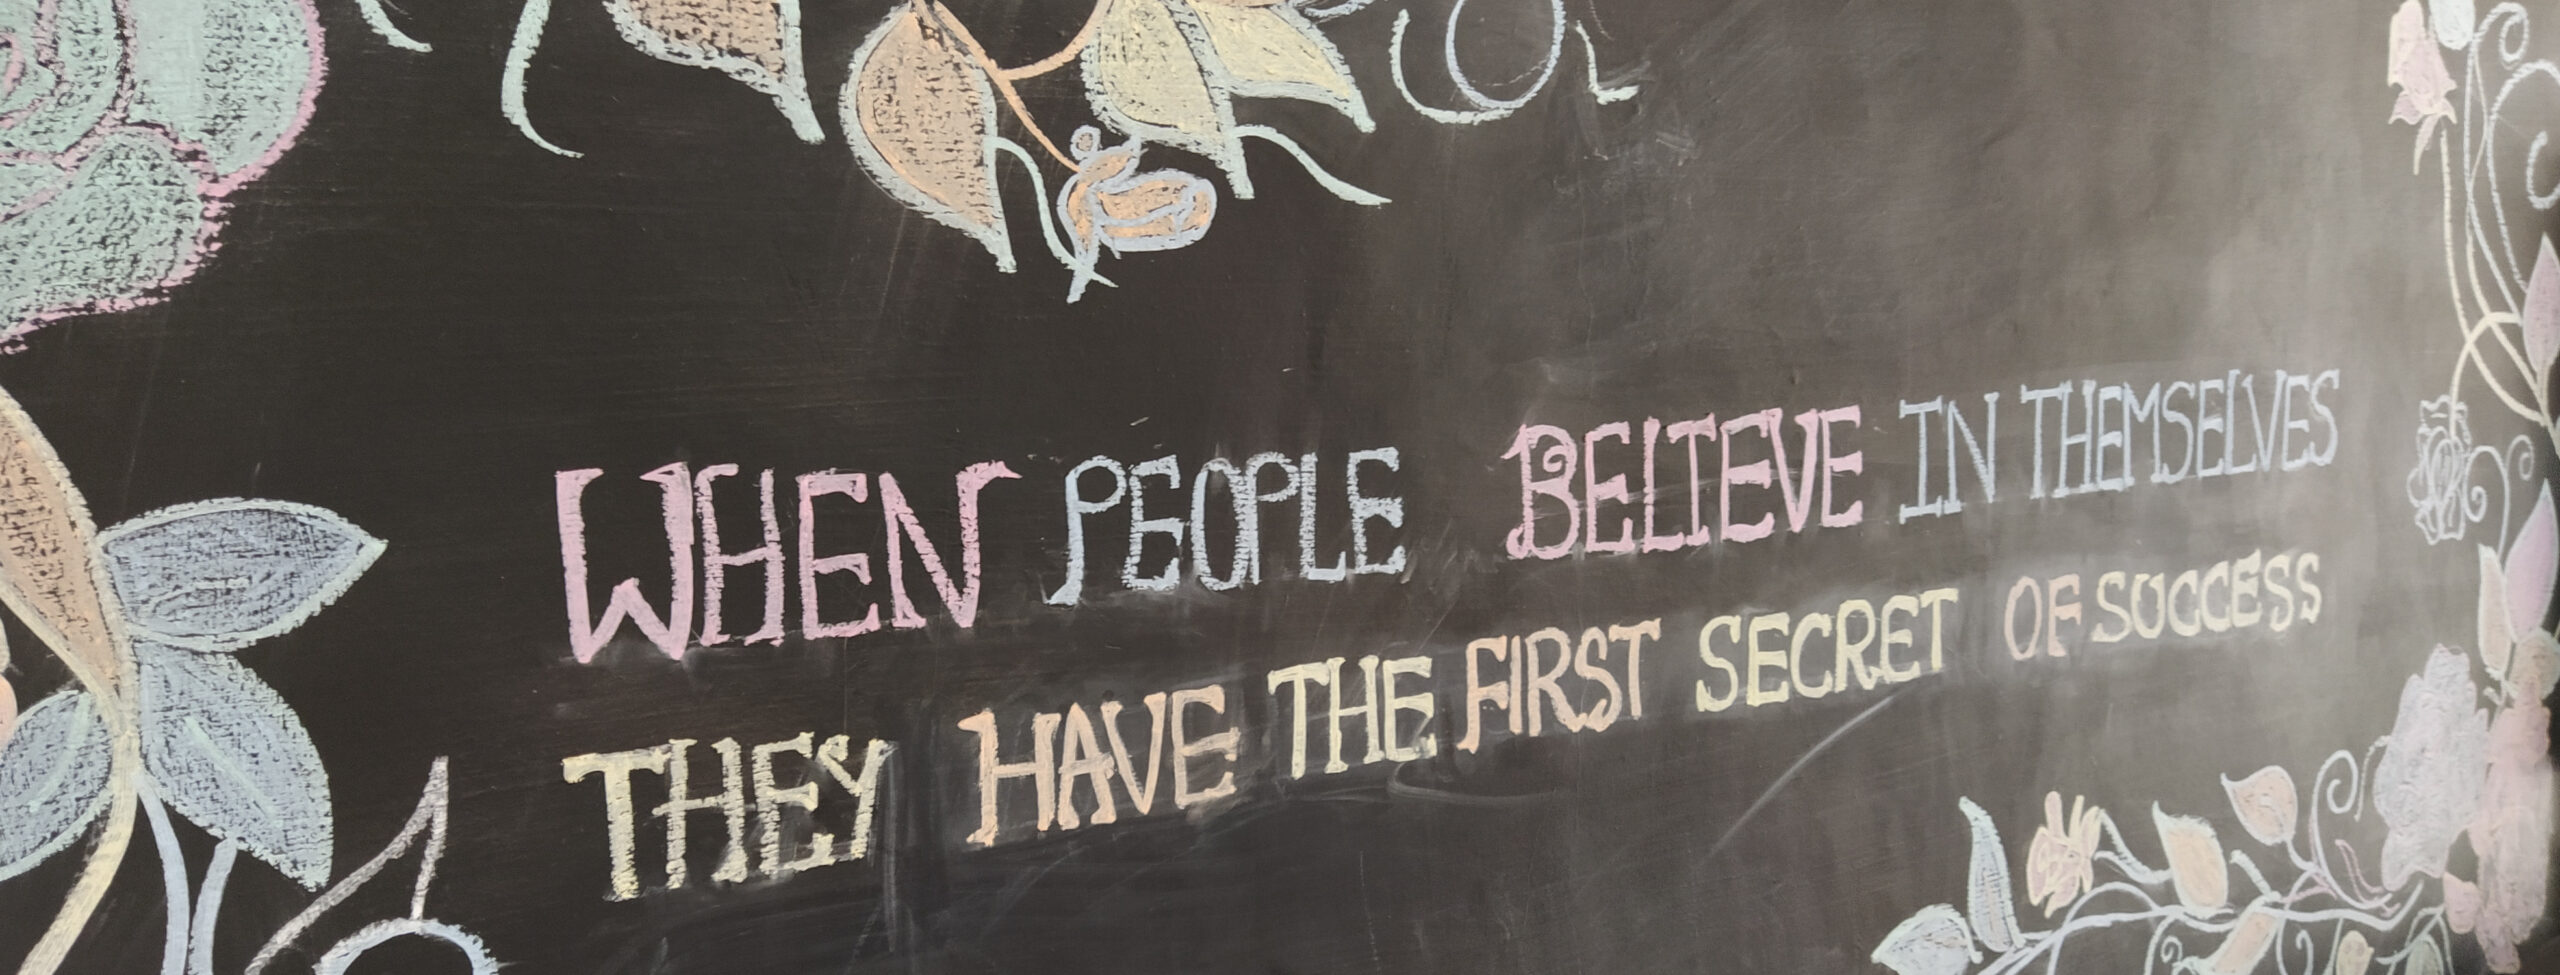 WHEN PEOPLE BELIEVE IN THEMSELVES
THEY HAVE THE FIRST SECRET OF SUCCESS